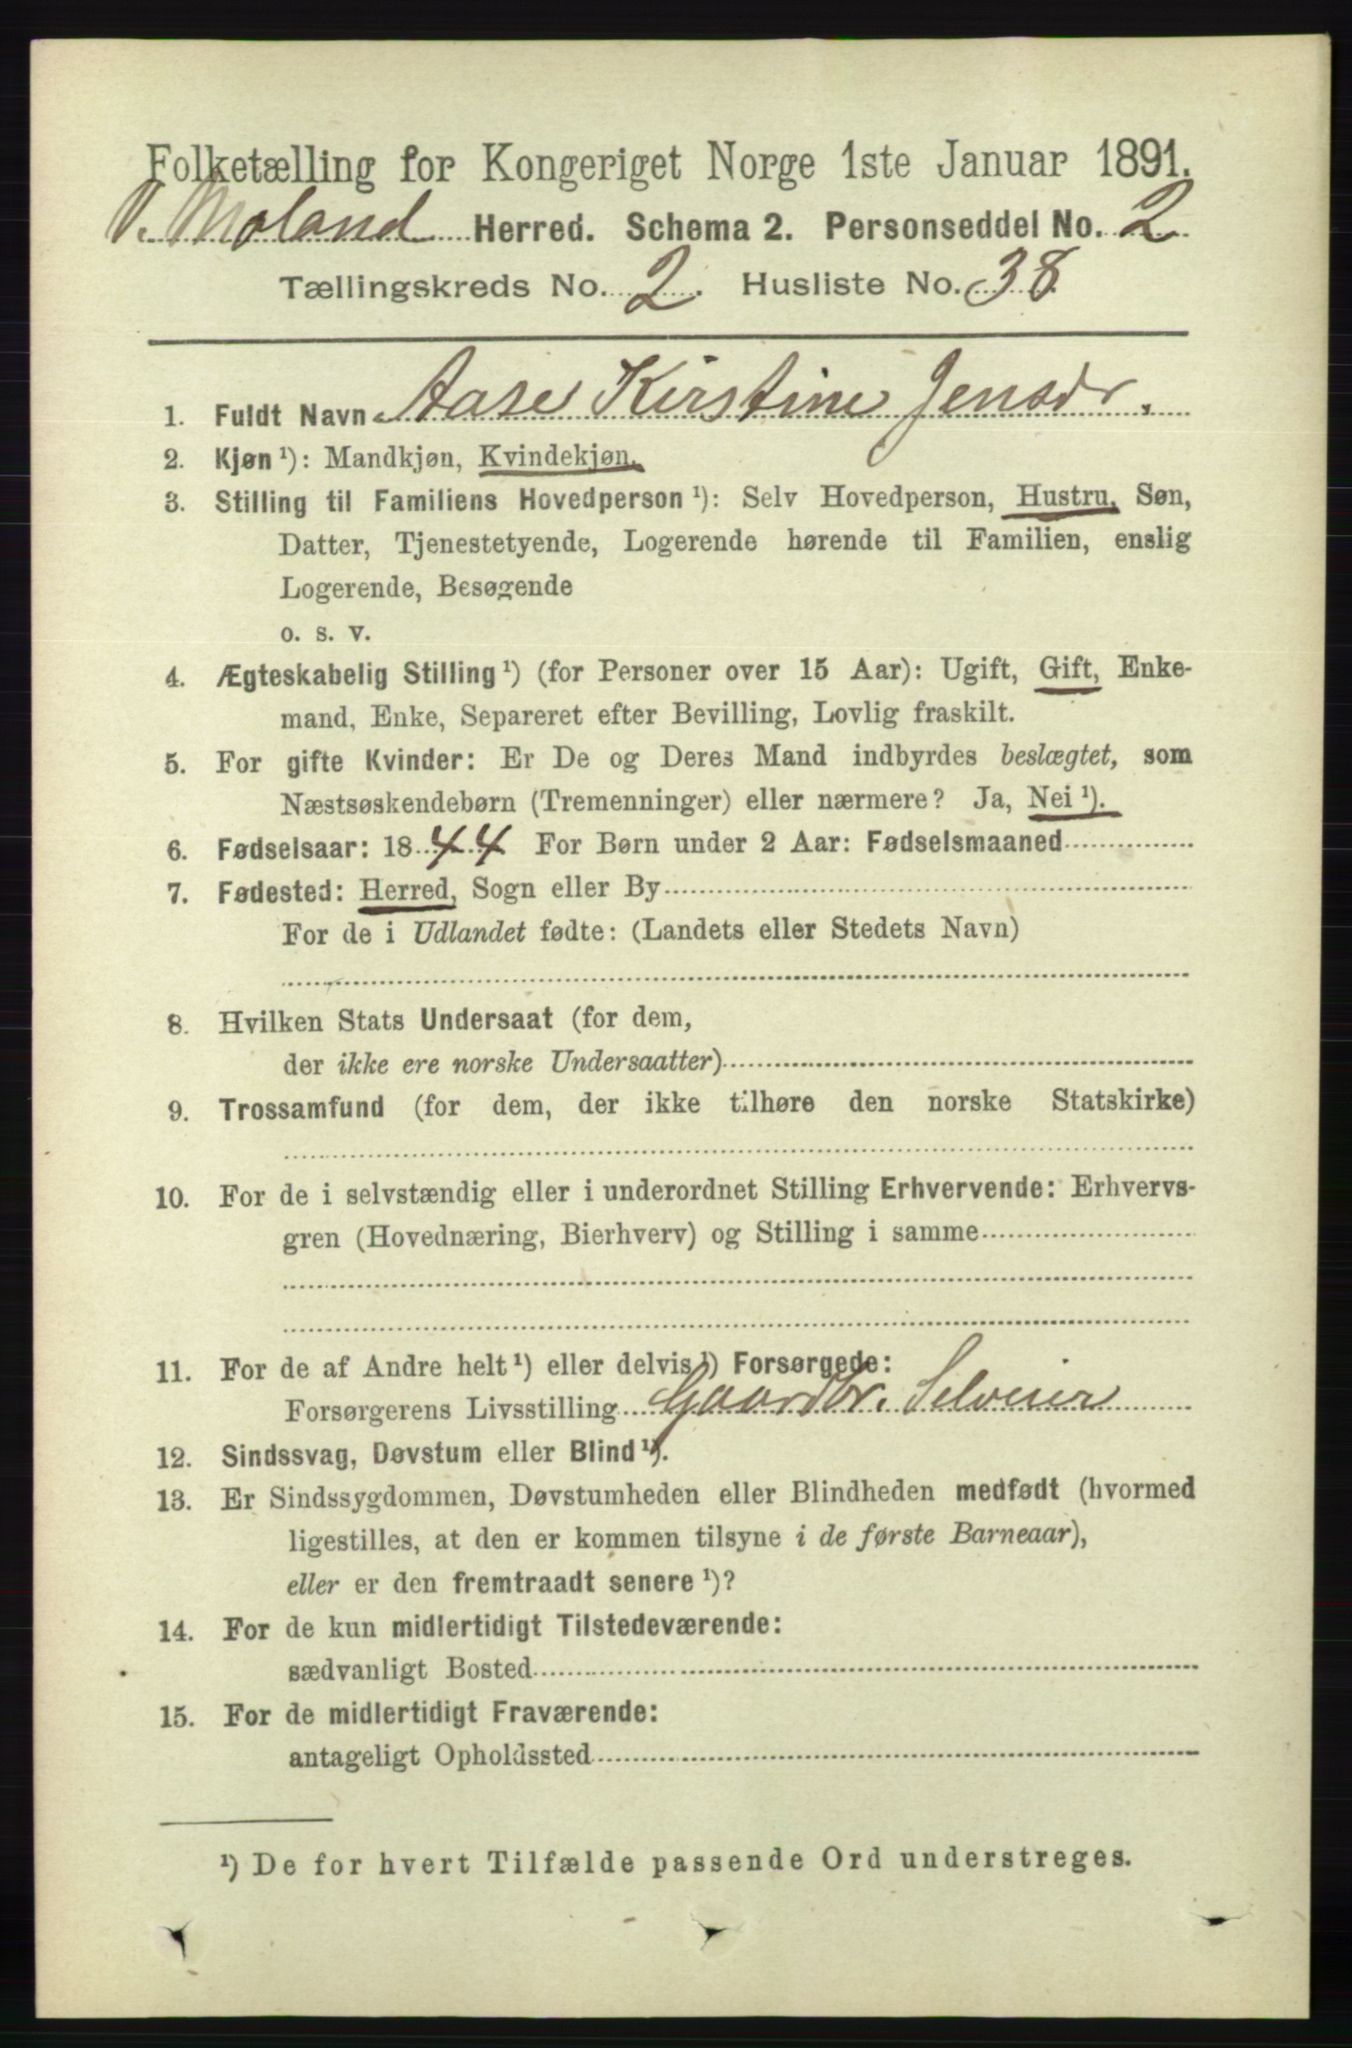 Folketælling for Kongeriget Norge 1ste Januar 1891.
V. Moland Herred. Schema 2. Personseddel No. 2
Tællingskreds No. 2. Husliste No. 38
1. Fuldt Navn Aase Kirstine Jensdr.
2. Kjøn ¹): Mandkjøn, Kvindekjøn.
3. Stilling til Familiens Hovedperson ¹): Selv Hovedperson, Hustru, Søn,
Datter, Tjenestetyende, Logerende hørende til Familien, enslig
Logerende, Besøgende
o. s. v.
4. Ægteskabelig Stilling ¹) (for Personer over 15 Aar): Ugift, Gift, Enke-
mand, Enke, Separeret efter Bevilling, Lovlig fraskilt.
5. For gifte Kvinder: Er De og Deres Mand indbyrdes beslægtet, som
Næstsøskendebørn (Tremenninger) eller nærmere? Ja, Nei ¹).
6. Fødselsaar: 1844 For Børn under 2 Aar: Fødselsmaaned
7. Fødested: Herred, Sogn eller By
For de i Udlandet fødte: (Landets eller Stedets Navn)
8. Hvilken Stats Undersaat (for dem,
der ikke ere norske Undersaatter)
9. Trossamfund (for dem, der ikke tilhøre den norske Statskirke)
10. For de i selvstændig eller i underordnet Stilling Erhvervende: Erhvervs-
gren (Hovednæring, Bierhverv) og Stilling i samme
11. For de af Andre helt ¹) eller delvis ¹) Forsørgede:
Forsørgerens Livsstilling Gaardbr. Selveier
12. Sindssvag, Døvstum eller Blind ¹).
13. Er Sindssygdommen, Døvstumheden eller Blindheden medfødt (hvormed
ligestilles, at den er kommen tilsyne i de første Barneaar),
eller er den fremtraadt senere ¹)?
14. For de kun midlertidigt Tilstedeværende:
sædvanligt Bosted
15. For de midlertidigt Fraværende:
antageligt Opholdssted
¹) De for hvert Tilfælde passende Ord understreges.